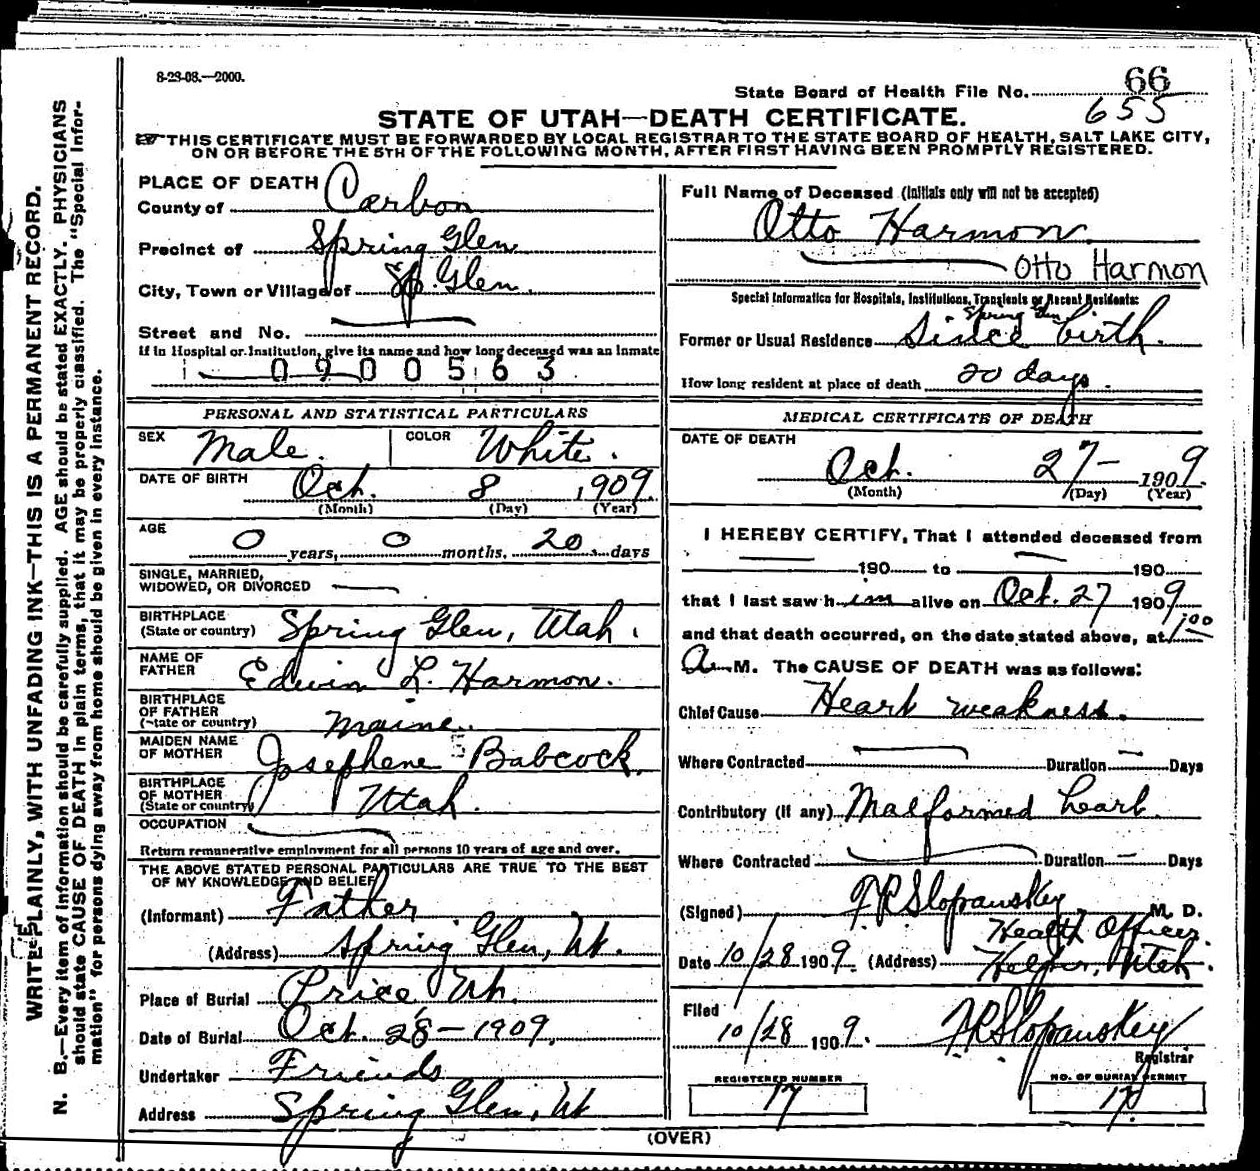 8-23-08.—2000.
66
State Board of Health File No.
655
STATE OF UTAH—DEATH CERTIFICATE.
THIS CERTIFICATE MUST BE FORWARDED BY LOCAL REGISTRAR TO THE STATE BOARD OF HEALTH, SALT LAKE CITY,
ON OR BEFORE THE 5TH OF THE FOLLOWING MONTH, AFTER FIRST HAVING BEEN PROMPTLY REGISTERED.
WRITE PLAINLY, WITH UNFADING INK—THIS IS A PERMANENT RECORD.
N. B.—Every item of information should be carefully supplied. AGE should be stated EXACTLY. PHYSICIANS
should state CAUSE OF DEATH in plain terms, that it may be properly classified. The "Special Infor-
mation" for persons dying away from home should be given in every instance.
PLACE OF DEATH
County of Carbon
Precinct of Spring Glen
City, Town or Village of Sp. Glen.
Street and No.
If in Hospital or Institution, give its name and how long deceased was an inmate
0900563
PERSONAL AND STATISTICAL PARTICULARS
SEX Male. COLOR White.
DATE OF BIRTH Oct. 8, 1909.
(Month) (Day) (Year)
AGE
0 years, 0 months, 20 days
SINGLE, MARRIED,
WIDOWED, OR DIVORCED —
BIRTHPLACE
(State or country) Spring Glen, Utah.
NAME OF
FATHER Edwin L. Harmon.
BIRTHPLACE
OF FATHER
(State or country) Maine.
MAIDEN NAME
OF MOTHER Josephene Babcock.
BIRTHPLACE
OF MOTHER
(State or country) Utah.
OCCUPATION
Return remunerative employment for all persons 10 years of age and over.
THE ABOVE STATED PERSONAL PARTICULARS ARE TRUE TO THE BEST
OF MY KNOWLEDGE AND BELIEF
(Informant) Father
(Address) Spring Glen, Ut.
Place of Burial Price Ut.
Date of Burial Oct. 28—1909.
Undertaker Friends
Address Spring Glen, Ut
Full Name of Deceased (Initials only will not be accepted)
Otto Harmon
Otto Harmon
Special Information for Hospitals, Institutions, Transients or Recent Residents:
Spring Glen
Former or Usual Residence Since birth.
How long resident at place of death 20 days.
MEDICAL CERTIFICATE OF DEATH
DATE OF DEATH
Oct. 27— 1909.
(Month) (Day) (Year)
I HEREBY CERTIFY, That I attended deceased from
— 190 to — 190
that I last saw him alive on Oct. 27 1909
and that death occurred, on the date stated above, at 1:00
A. M. The CAUSE OF DEATH was as follows:
Chief Cause Heart weakness.
Where Contracted — Duration — Days
Contributory (if any) Malformed heart.
Where Contracted — Duration — Days
(Signed) F.R. Slopansky M. D.
Health Officer.
Date 10/28 1909. (Address) Helper, Utah.
Filed
10/28 1909. F.R. Slopanskey
Registrar
REGISTERED NUMBER
17
NO. OF BURIAL PERMIT
17
(OVER)